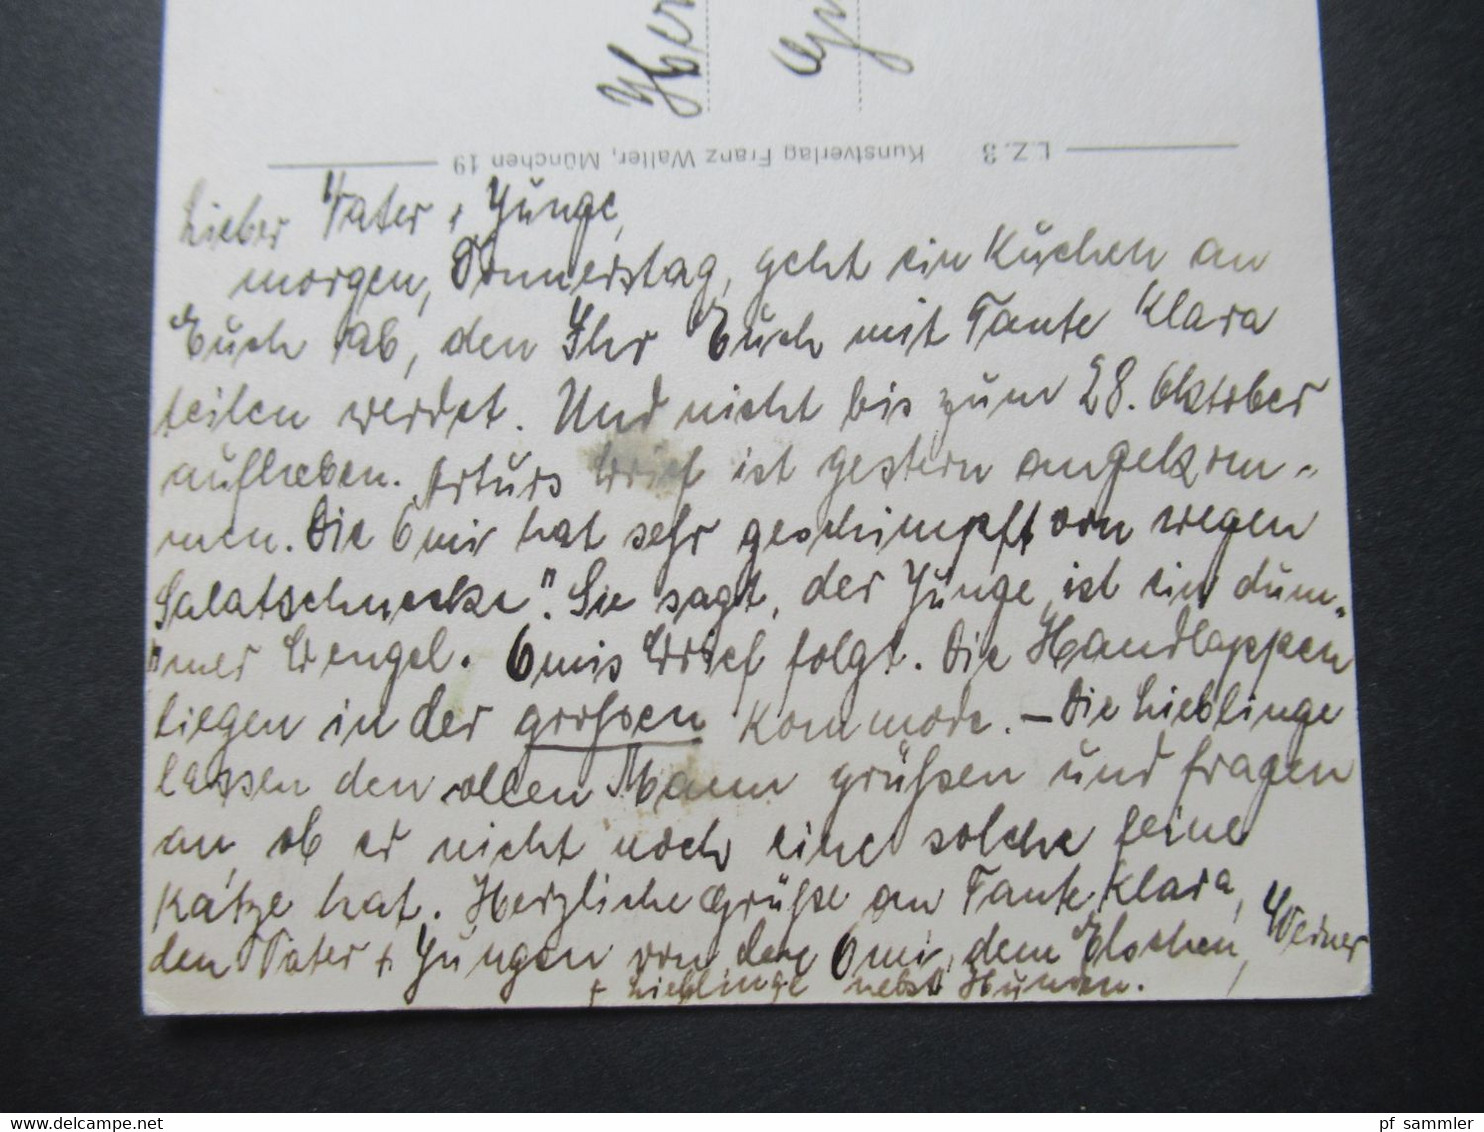 L.Z. 3 Kunstverlag Franz Walter, München 19
Lieber Vater + Junge,
morgen, Donnerstag, geht ein Kuchen an
Euch ab, den Ihr Euch mit Tante Klara
teilen werdet. Und nicht bis zum 28. Oktober
aufheben. Arturs Brief ist gestern angekom-
men. Die Omi hat sehr geschimpft von wegen
Salatschnecke". Sie sagt, der Junge ist ein dum-
mer Bengel. Omis Brief folgt. Die Handlappen
liegen in der grossen Kommode. – Die Lieblinge
lassen den ollen Mann grüßen und fragen
an, ob er nicht noch eine solche feine
Katze hat. Herzliche Grüße an Tante Klara,
den Vater + Jungen von der Omi, dem Elschen, Werner
+ Lieblinge nebst
pf_sammler